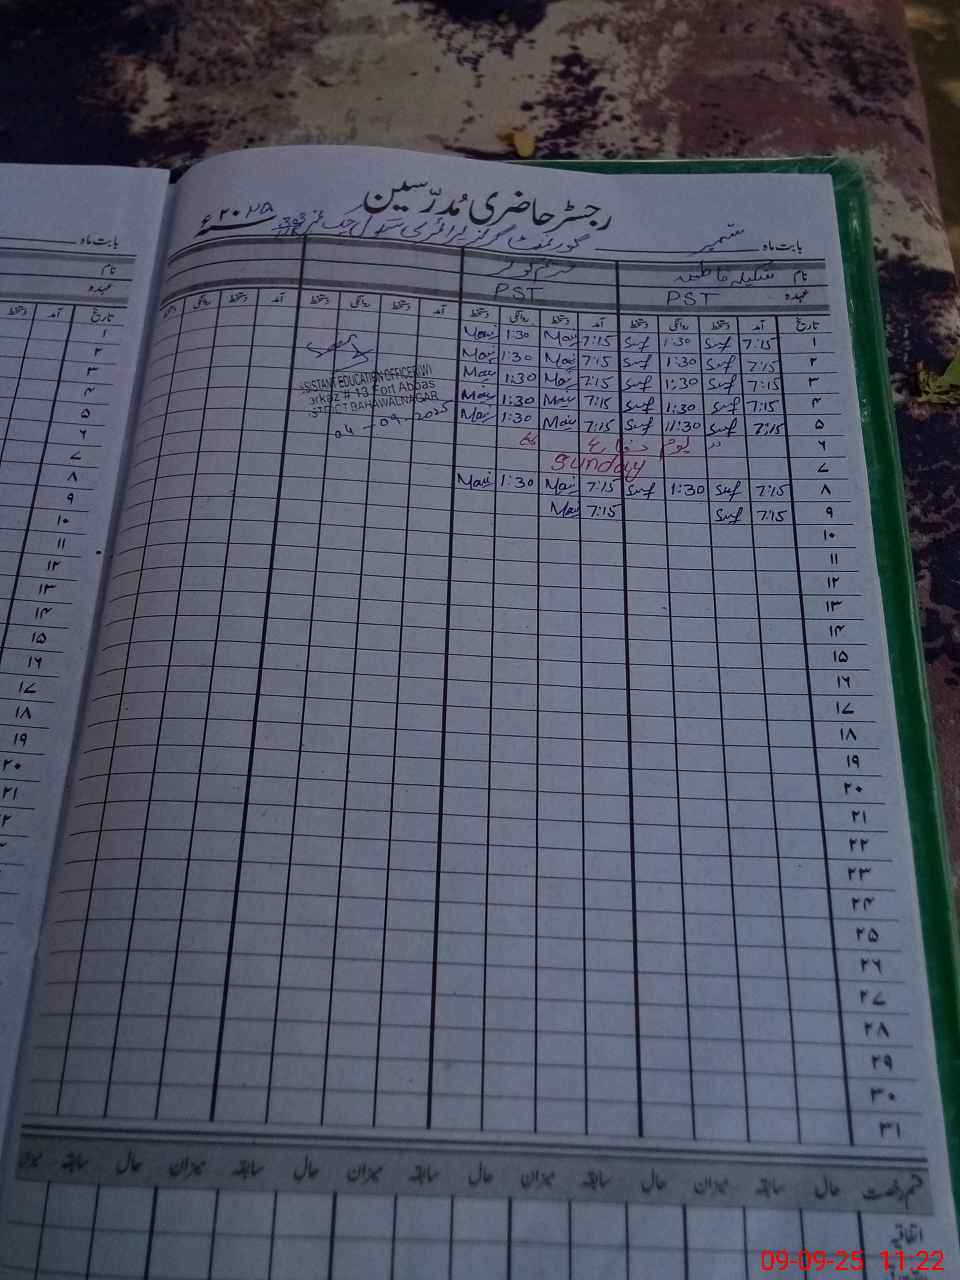 رجسٹر حاضری مُدرّسین
بابت ماہ ستمبر گورنمنٹ گرلز پرائمری سکول چک نمبر ۲۰۲۵ء
نام شکیلہ فاطمہ
عہدہ PST PST
تاریخ آمد دستخط روانگی دستخط آمد دستخط روانگی دستخط آمد دستخط روانگی دستخط آمد دستخط روانگی دستخط
۱ 7:15 1:30 7:15 1:30
۲ 7:15 1:30 7:15 1:30
۳ 7:15 1:30 7:15 1:30
۴ 7:15 1:30 7:15 1:30
۵ 7:15 11:30 7:15 1:30
SISTANT EDUCATION OFFICER(W)
arkaz # 13 Fort Abbas
STRICT BAHAWALNAGAR
04-09-2025
۶ یوم
۷ Sunday
۸ 7:15 1:30 7:15 1:30
۹ 7:15 7:15
۱۰
۱۱
۱۲
۱۳
۱۴
۱۵
۱۶
۱۷
۱۸
۱۹
۲۰
۲۱
۲۲
۲۳
۲۴
۲۵
۲۶
۲۷
۲۸
۲۹
۳۰
۳۱
قسم رخصت حال سابقہ میزان حال سابقہ میزان حال سابقہ میزان حال سابقہ میزان حال سابقہ میزان
اتفاقیہ
بابت ماہ
نام
عہدہ
تاریخ آمد دستخط
۱
۲
۳
۴
۵
۶
۷
۸
۹
۱۰
۱۱
۱۲
۱۳
۱۴
۱۵
۱۶
۱۷
۱۸
۱۹
۲۰
۲۱
09-09-25 11:22